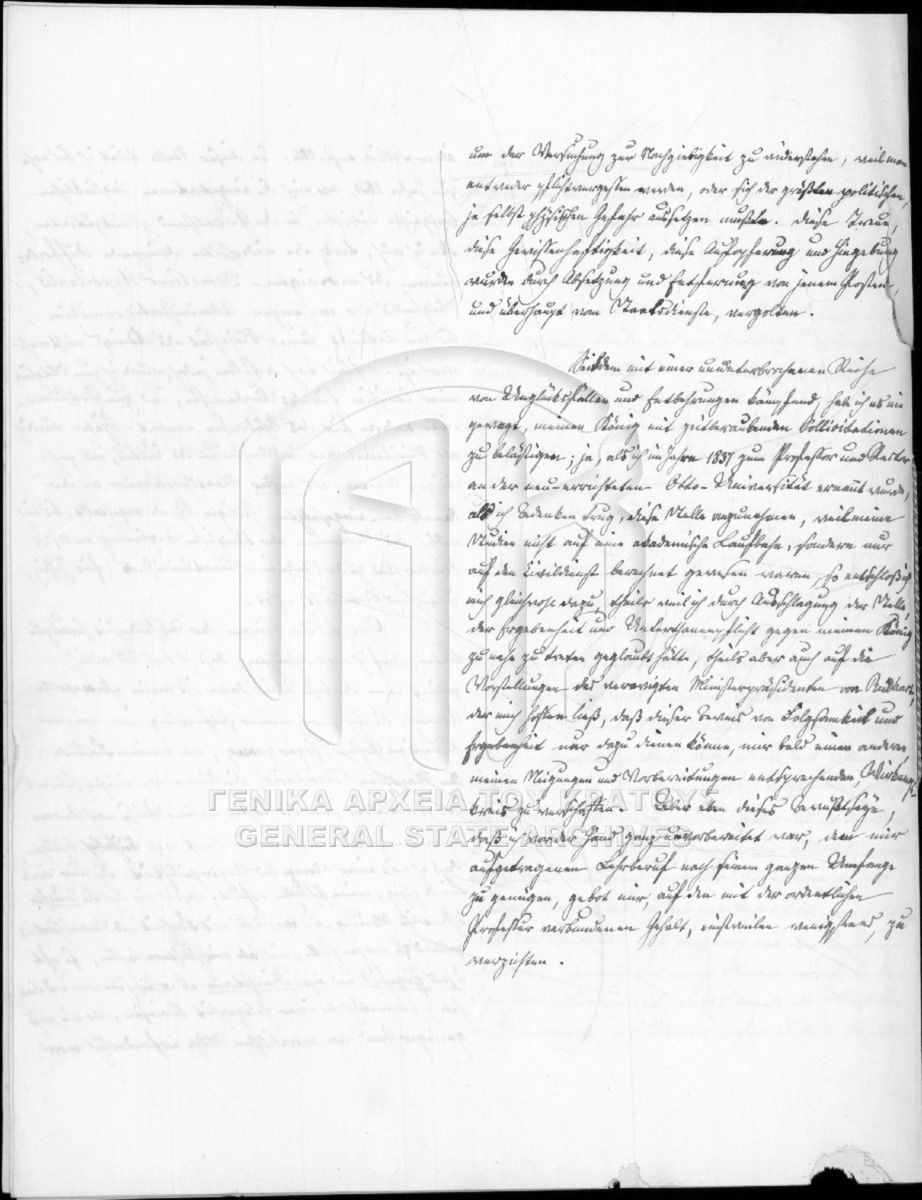 um der Versuchung zur Nachgiebigkeit zu widerstehen, weil man
entweder pflichtvergessen werden, oder sich der größten politischen,
ja selbst physischen Gefahr aussetzen mußte. Diese Treue,
diese Gewissenhaftigkeit, diese Aufopferung und Hingebung
wurden durch Absetzung und Entfernung von jenem Posten,
und überhaupt vom Staatsdienste, vergolten.
Seitdem mit einer ununterbrochenen Reihe
von Unglücksfällen und Entbehrungen kämpfend, habe ich es nie
gewagt, meinen König mit zeitraubenden Sollicitationen
zu belästigen; ja, als ich im Jahre 1837 zum Professor und Rector
an der neu-errichteten Otto-Universität ernant wurde,
als ich Bedenken trug, diese Stelle anzunehmen, weil meine
Studien nicht auf eine akademische Laufbahn, sondern nur
auf den Civildienst berechnet gewesen waren, so entschloß ich
mich gleichwohl dazu, theils weil ich durch Ausschlagung der Stelle,
der Ergebenheit und Unterthanenpflicht gegen meinen König
zu nahe zu treten geglaubt hätte, theils aber auch auf die
Vorstellungen des verewigten Ministerpräsidenten von Rudhart,
der mich hoffen ließ, daß dieser Beweis von Folgsamkeit und
Ergebenheit nur dazu dienen könne, mir bald einen anderen
meinen Neigungen und Vorbereitungen entsprechenden Wirkungs-
kreis zu verschaffen. Aber eben dieses Bewußtseyn,
daß ich vorder Hand ganz unvorbereitet war, dem mir
aufgetragenen Lehrberuf nach seinem ganzen Umfange
zu genügen, gebot mir, auf den mit der ordentlichen
Professur verbundenen Gehalt, einstweilen wenigstens, zu
verzichten.
ΓΕΝΙΚΑ ΑΡΧΕΙΑ ΤΟΥ ΚΡΑΤΟΥΣ
GENERAL STATE ARCHIVES